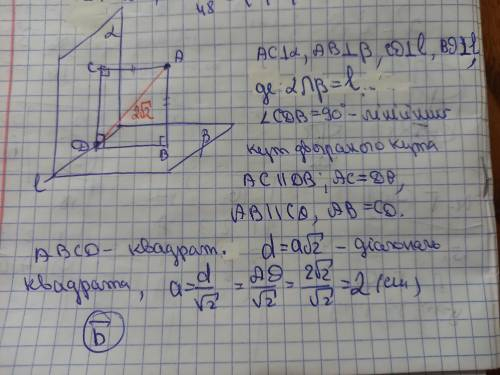 48
α
C
A
2√2
D
B
β
l
AC⊥α, AB⊥β, CD⊥l, BD⊥l,
де α∩β=l...
∠CDB=90°- лінійний
кут двогранного кута
AC∥DB; AC=DB,
AB∥CD, AB=CD.
ABCD - квадрат. d=a√2 - діагональ
квадрата, a=d/√2=AD/√2=2√2/√2=2 (см)
Б